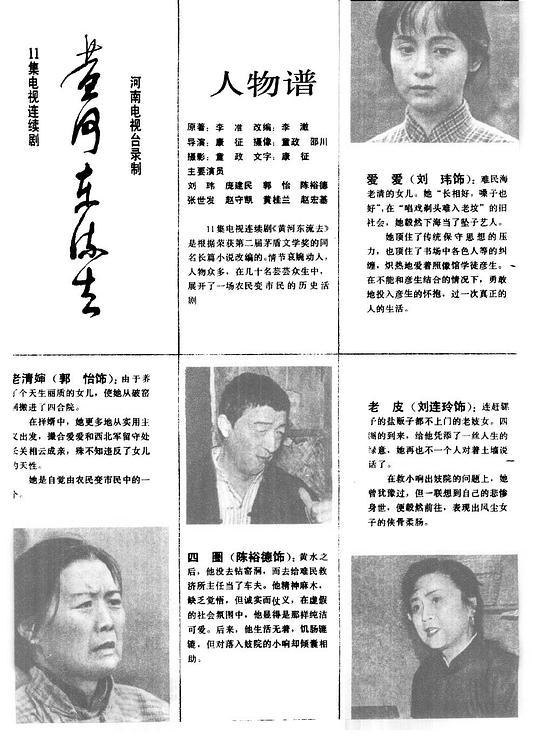 11集电视连续剧
黄河东流去
河南电视台录制
人物谱
原著：李　准　改编：李　澈
导演：康　征　摄像：童政　邵川
摄影：童　政　文字：康　征
主要演员
刘　玮　庞建民　郭　怡　陈裕德
张世发　赵守凯　黄桂兰　赵宏基
11集电视连续剧《黄河东流去》
是根据荣获第二届茅盾文学奖的同
名长篇小说改编的。情节哀婉动人，
人物众多，在几十名芸芸众生中，
展开了一场农民变市民的历史活
剧
爱　爱（刘　玮饰）：难民海
老清的女儿。她“长相好，嗓子也
好”，在“唱戏剃头难入老坟”的旧
社会，她毅然下海当了坠子艺人。
她顶住了传统保守思想的压
力，也顶住了书场中各色人等的纠
缠，炽热地爱着照像馆学徒彦生。
在不能和彦生结合的情况下，勇敢
地投入彦生的怀抱，过一次真正的
人的生活。
老清婶（郭　怡饰）：由于养
了个天生丽质的女儿，使她从破窑
洞搬进了四合院。
在择婿中，她更多地从实用主
义出发，撮合爱爱和西北军留守处
长关相云成亲，殊不知违反了女儿
的天性。
她是自觉由农民变市民中的一
个。
四　圈（陈裕德饰）：黄水之
后，他没去钻窑洞，而去给难民救
济所主任当了车夫。他精神麻木，
缺乏觉悟，但诚实而仗义，在虚假
的社会氛围中，他显得是那样纯洁
可爱。后来，他生活无着，饥肠辘
辘，但对落入妓院的小响却倾囊相
助。
老　皮（刘连玲饰）：连赶骡
子的盐贩子都不上门的老妓女。四
圈的到来，给他凭添了一丝人生的
绿意，她再也不一个人对着土墙说
话了。
在救小响出妓院的问题上，她
曾犹豫过，但一联想到自己的悲惨
身世，便毅然前往，表现出风尘女
子的侠骨柔肠。